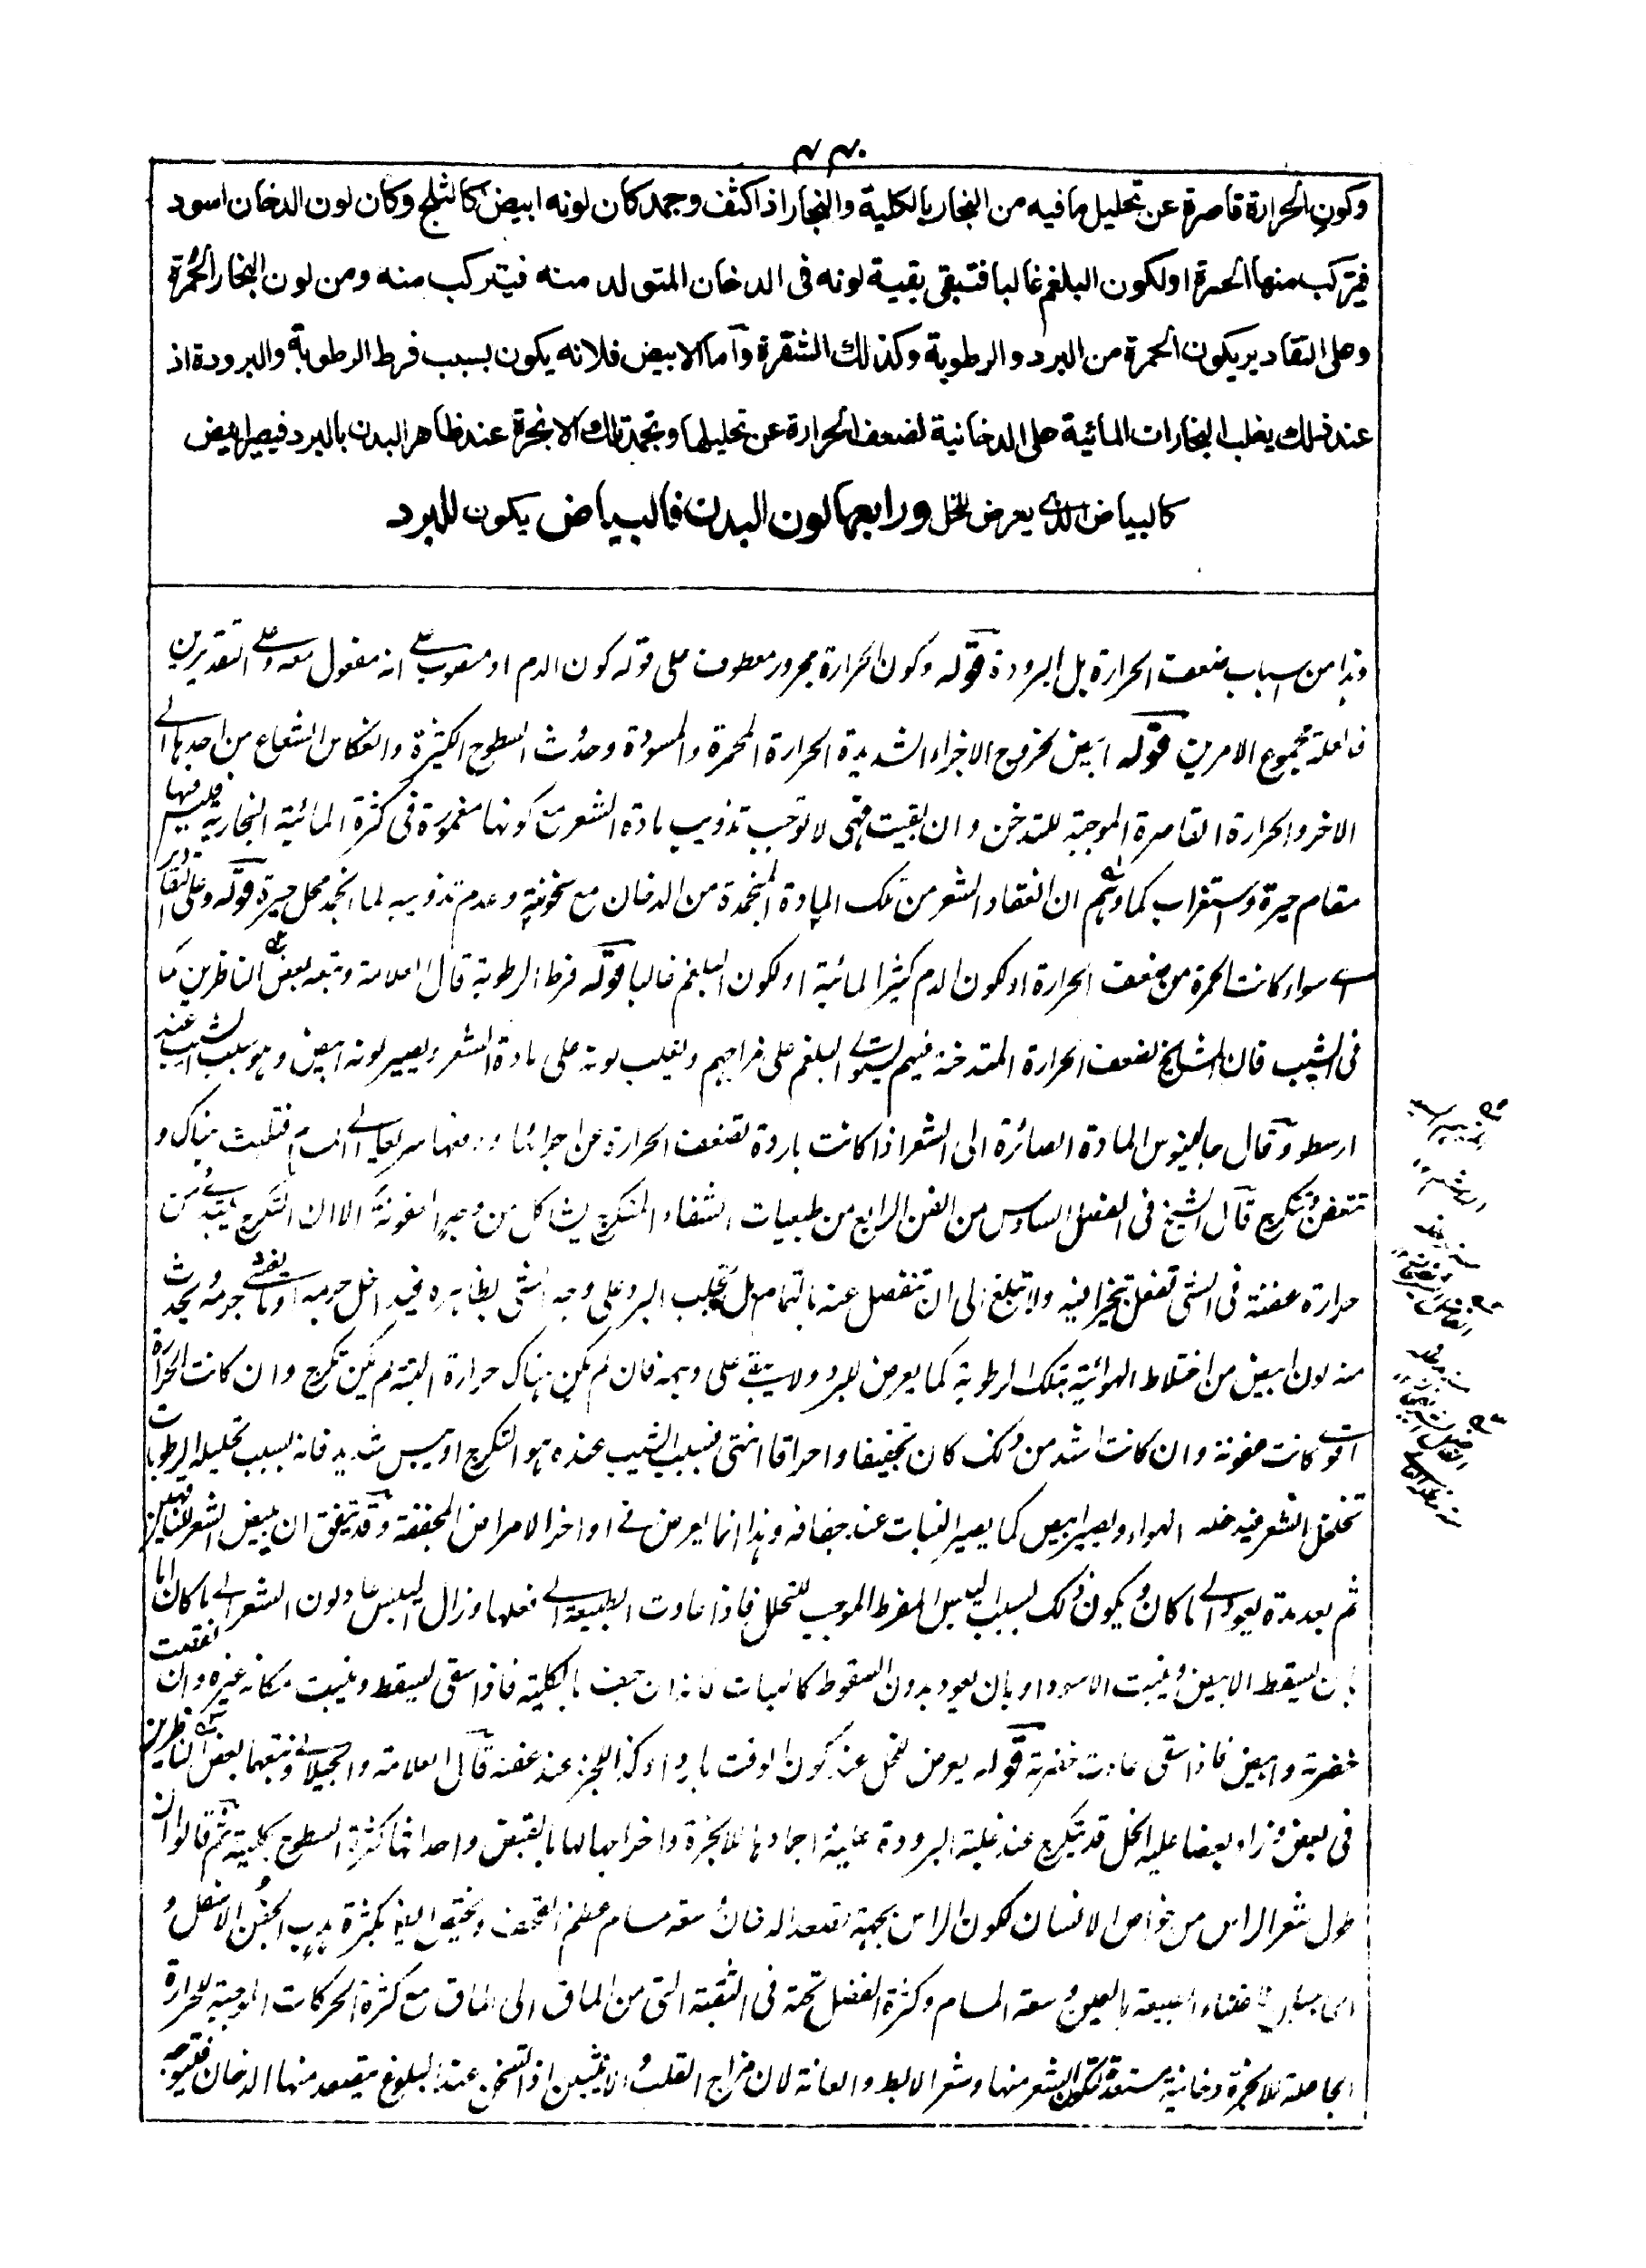 ۴۴۰
وكون الحرارة قاصرة عن تحليل ما فيه من البخار بالكلية والبخار اذا كثف وجمد كان لونه ابيض كالثلج وكان لون الدخان اسود
فيتركب منها الحمرة او لكون البلغم غالبا فتبقى بقية لونه فى الدخان المتولد منه فيتركب منه ومن لون البخار الحمرة
وعلى التقادير يكون الحمرة من البرد والرطوبة وكذلك الشقرة وآما الابيض فلانه يكون بسبب فرط الرطوبة والبرودة اذ
عند ذلك يغلب البخارات المائية على الدخانية لضعف الحرارة عن تحليلها وتجمد تلك الابخرة عند ظاهر البدن بالبرد فيصير ابيض
كالبياض الذى يعرض للخل ورابعها لون البدن فالبياض يكون للبرد
وهذا من اسباب ضعف الحرارة بل البرودة قوله وكون الحرارة مجرور معطوف على قوله كون الدم او منصوب على انه مفعول معه وعلى التقديرين
فالعلة مجموع الامرين قوله ابيض لخروج الاجزاء الشديدة الحرارة المحمرة والمسودة وحدوث السطوح الكثيرة وانعكاس الشعاع من احدها الى
الاخر والحرارة القاصرة الموجبة للتدخن وان بقيت فهى لا توجب تذويب مادة الشعر مع كونها مغمورة فى كثرة المائية البخارية فليس فيها
مقام حيرة واستغراب كما وهم ان انعقاد الشعر من تلك المادة المنجمدة من الدخان مع سخونته وعدم تذويبه لما انجمد محل حيرة قوله وعلى التقادير
اى سواء كانت الحمرة من ضعف الحرارة او لكون الدم كثير المائية او لكون البلغم غالبا قوله فرط الرطوبة قال العلامة وتبعه بعض الناظرين كما
فى الشيب فان المشايخ لضعف الحرارة المتدخنة فيهم يستولى البلغم على مزاجهم ويغلب لونه على مادة الشعر ويصير لونه ابيض وهو سبب الشيب عند
ارسطو وقال جالينوس المادة الصائرة الى الشعر اذا كانت باردة لضعف الحرارة عن اجرائها ودفعها سريعا الى المسام فتلبث هناك و
تتعفن وتتكرج قال الشيخ فى الفصل السادس من الفن الرابع من طبعيات الشفاء التكرج يشاكل من وجه العفونة الا ان التكرج يبتدئ من
حرارة عفنة فى الشئ تفعل تبخيرا فيه ولا تبلغ الى ان تنفصل عنه بالتمام بل يحبس البرد على وجه الشئ بظاهره فيداخل جرمه او يغشى جرمه ويحدث
منه لون ابيض من اختلاط الهوائية بتلك الرطوبة كما يعرض للزبد ولا يبقى على وجهه فان لم يكن هناك حرارة البتة لم يكن تكرج وان كانت الحرارة
اقوى كانت عفونة وان كانت اشد من ذلك كان تجفيفا واحراقا انتهى فسبب الشيب عنده هو التكرج او يبس شديد فانه بسبب تحليله الرطوبات
تخلخل الشعر فيدخله الهواء ويصير ابيض كما يصير النبات عند جفافه وهذا انما يعرض فى اواخر الامراض المجففة وقد يتفق ان يبيض الشعر للناقهين
ثم بعد مدة يعود الى ما كان ويكون ذلك بسبب اليبس المفرط الموجب للتخلخل فاذا عادت الطبيعة الى فعلها وزال اليبس عاد لون الشعر الى ما كان اما
بان يسقط الابيض وينبت الاسود او بان يعود بدون السقوط كالنبات فانه ان جف بالكلية فاذا سقى يسقط وينبت مكانه غيره وان نقصت
خضرته وابيض فاذا سقى عادت خضرته قوله يعرض للخل عند كون الوقت باردا وكذا للخبز عند عفنه قال العلامة والجيلانى وتبعهما بعض الناظرين
فى بعض وزاد بعضا عليه الخل قد يتكرج عند غلبة البرودة عليه اجمادها للابخرة واخراجها لها بالقبض واحداثها كثرة السطوح بكلية ثم قالوا ان
طول شعر الراس من خواص الانسان لكون الراس بجهة تصعد الدخان وسعة مسام عظم القحف ويختص ايضا بكثرة هدب الجفن الاسفل و
الحاجبين لاعتناء الطبيعة بالعين وسعة المسام وكثرة الفضل تحته فى الثقبة التى من الماق الى الماق مع كثرة الحركات الموجبة للحرارة
الجاعلة للابخرة دخانية مستعدة لتكون الشعر منها وشعر الابط والعانة لان مزاج القلب والانثيين اذا تسخن عند البلوغ يتصعد منها الدخان فقيومه